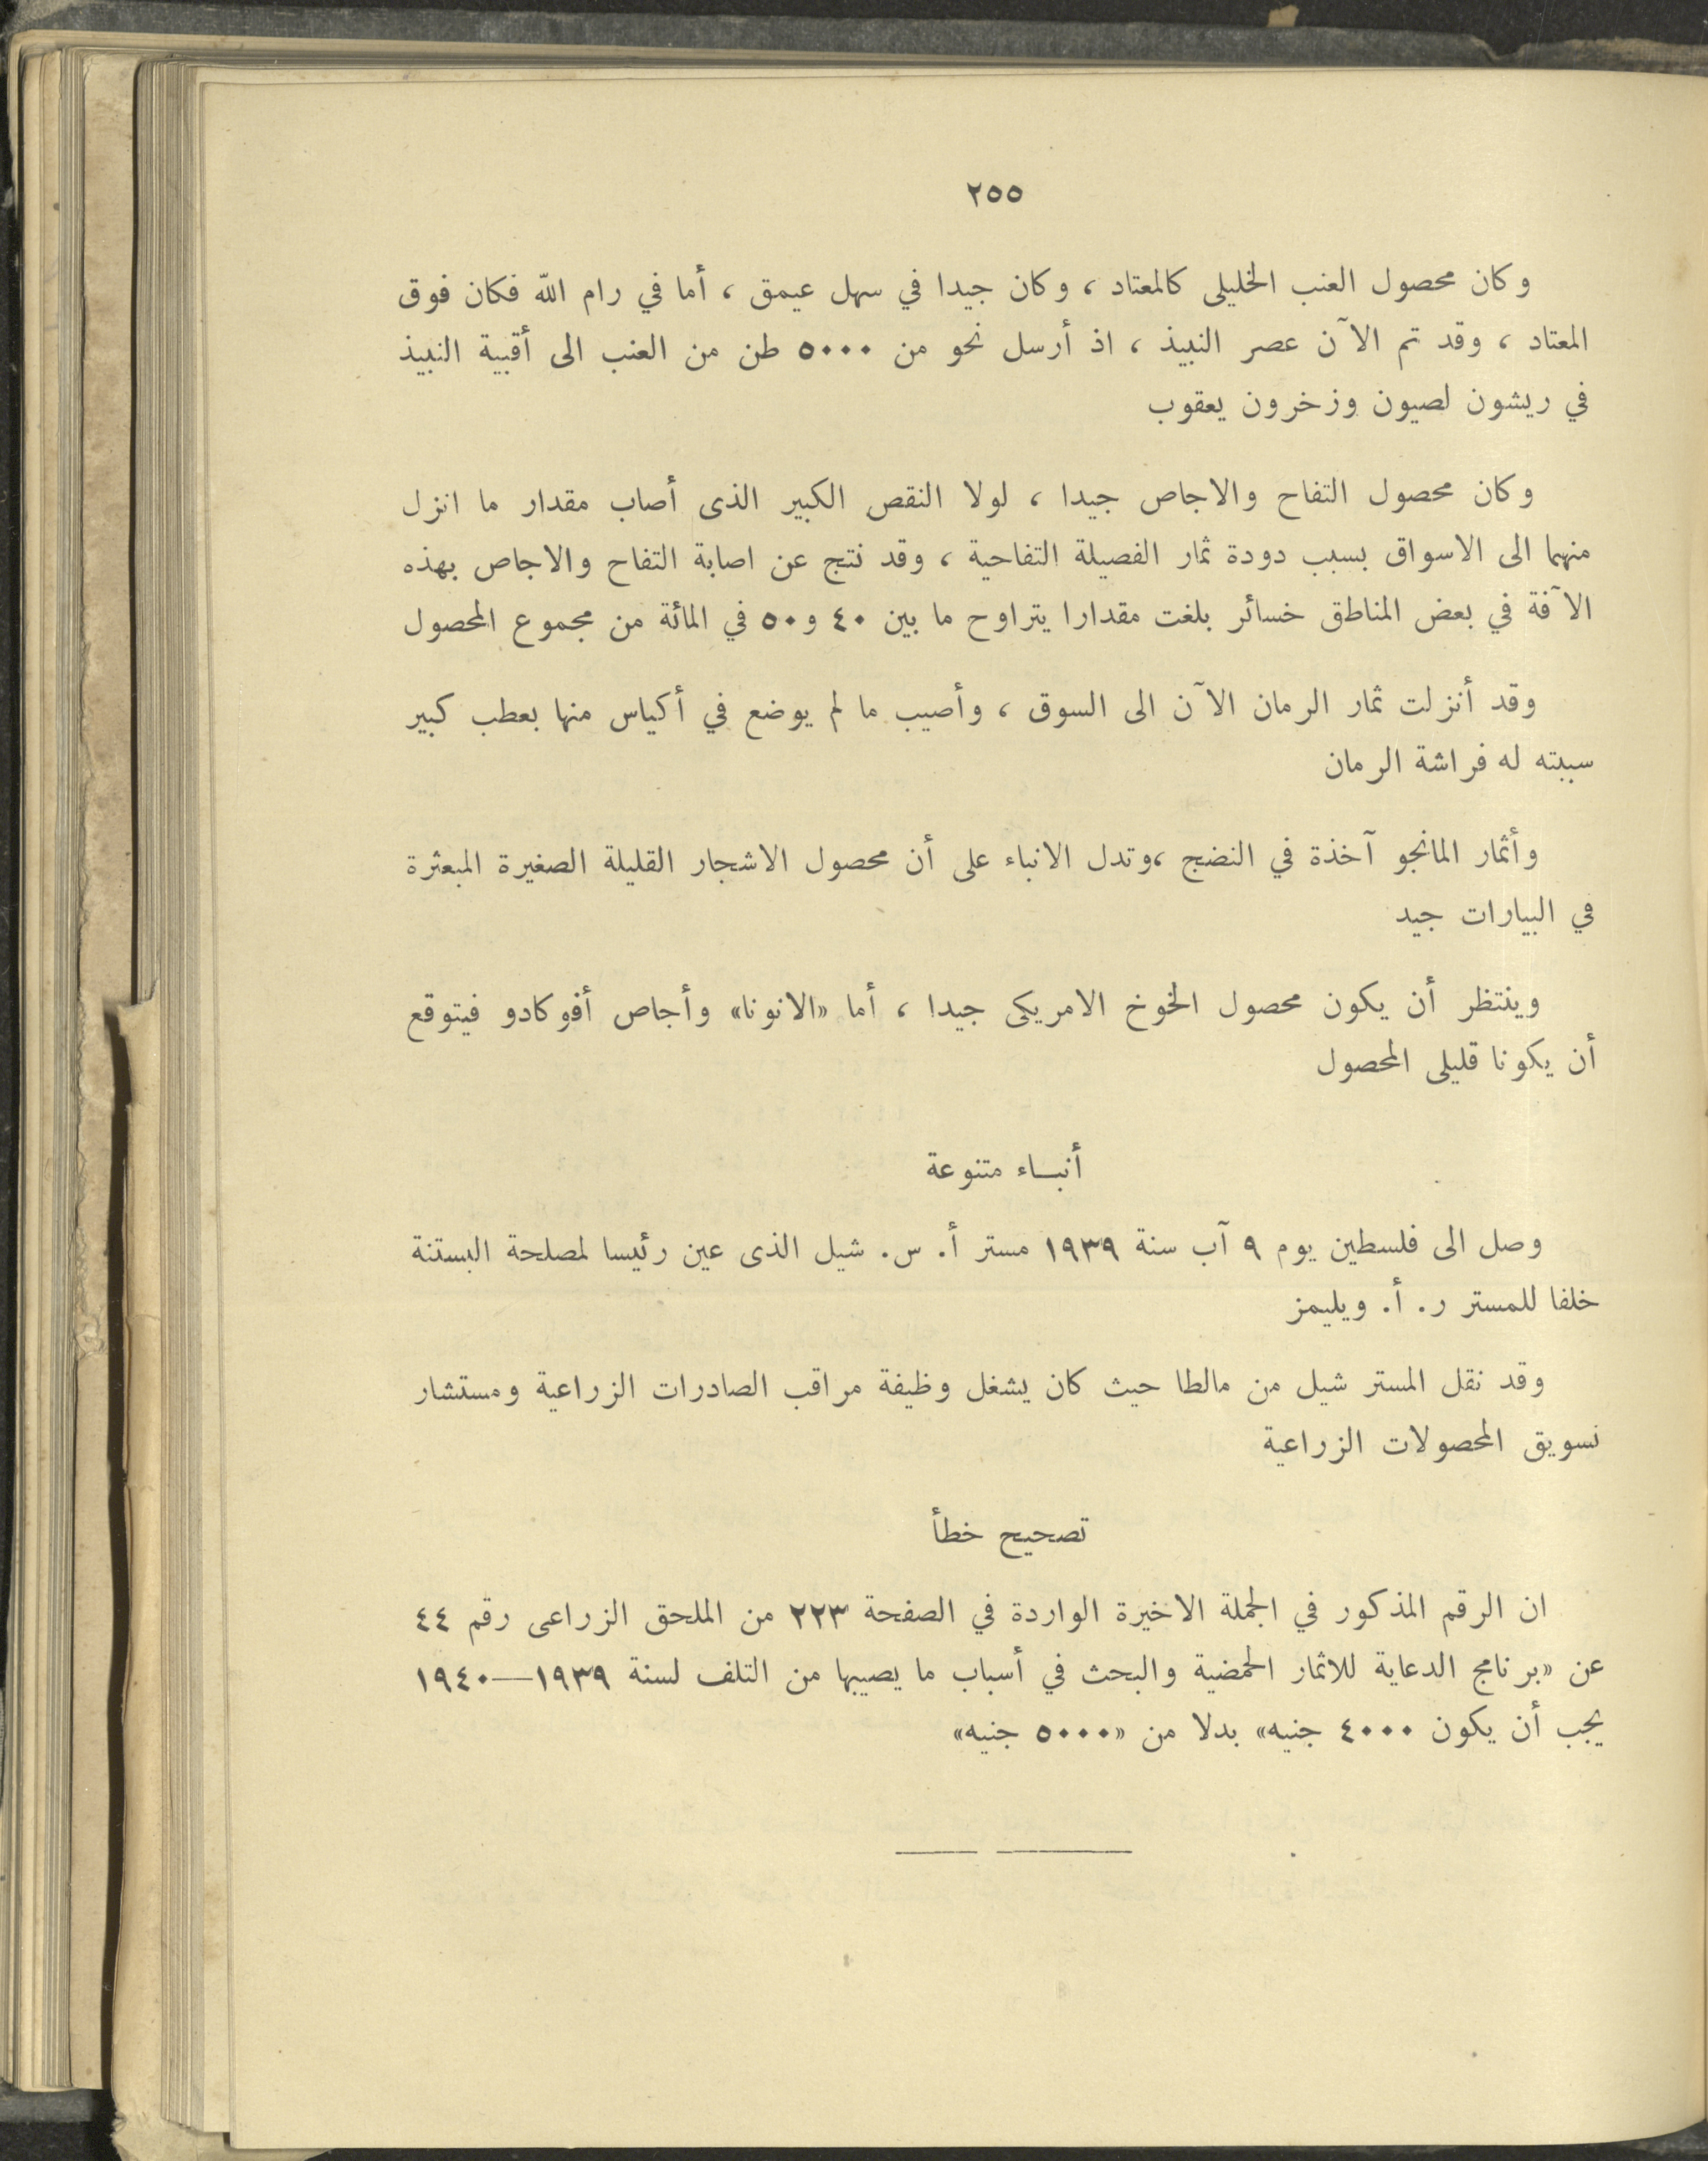 ٢٥٥
وكان محصول العنب الخليلى كالمعتاد ، وكان جيدا في سهل عيمق ، أما في رام الله فكان فوق
المعتاد ، وقد تم الآن عصر النبيذ ، اذ أرسل نحو من ٥٠٠٠ طن من العنب الى أقبية النبيذ
في ريشون لصيون وزخرون يعقوب
وكان محصول التفاح والاجاص جيدا ، لولا النقص الكبير الذى أصاب مقدار ما انزل
منهما الى الاسواق بسبب دودة ثمار الفصيلة التفاحية ، وقد نتج عن اصابة التفاح والاجاص بهذه
الآفة في بعض المناطق خسائر بلغت مقدارا يتراوح ما بين ٤٠ و٥٠ في المائة من مجموع المحصول
وقد أنزلت ثمار الرمان الآن الى السوق ، وأصيب ما لم يوضع في أكياس منها بعطب كبير
سببته له فراشة الرمان
وأثمار المانجو آخذة في النضج ،وتدل الانباء على أن محصول الاشجار القليلة الصغيرة المبعثرة
في البيارات جيد
وينتظر أن يكون محصول الخوخ الامريكى جيدا ، أما «الانونا» وأجاص أفوكادو فيتوقع
أن يكونا قليلى المحصول
أنبــاء متنوعة
وصل الى فلسطين يوم ٩ آب سنة ١٩٣٩ مستر أ. س. شيل الذى عين رئيسا لمصلحة البستنة
خلفا للمستر ر. أ. ويليمز
وقد نقل المستر شيل من مالطا حيث كان يشغل وظيفة مراقب الصادرات الزراعية ومستشار
تسويق المحصولات الزراعية
تصحيح خطأ
ان الرقم المذكور في الجملة الاخيرة الواردة في الصفحة ٢٢٣ من الملحق الزراعى رقم ٤٤
عن «برنامج الدعاية للاثمار الحمضية والبحث في أسباب ما يصيبها من التلف لسنة ١٩٣٩—١٩٤٠
يجب أن يكون ٤٠٠٠ جنيه» بدلا من «٥٠٠٠ جنيه»